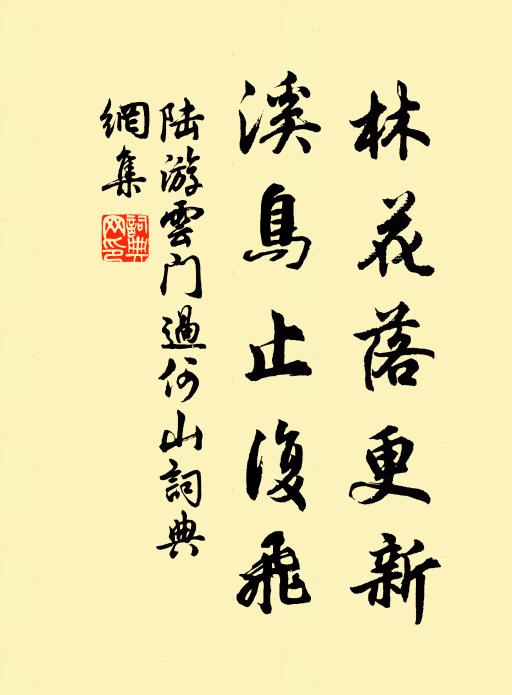 林花落更新
溪鳥止復飛
陆游雲门過何山詞典
網集
詞典
网印